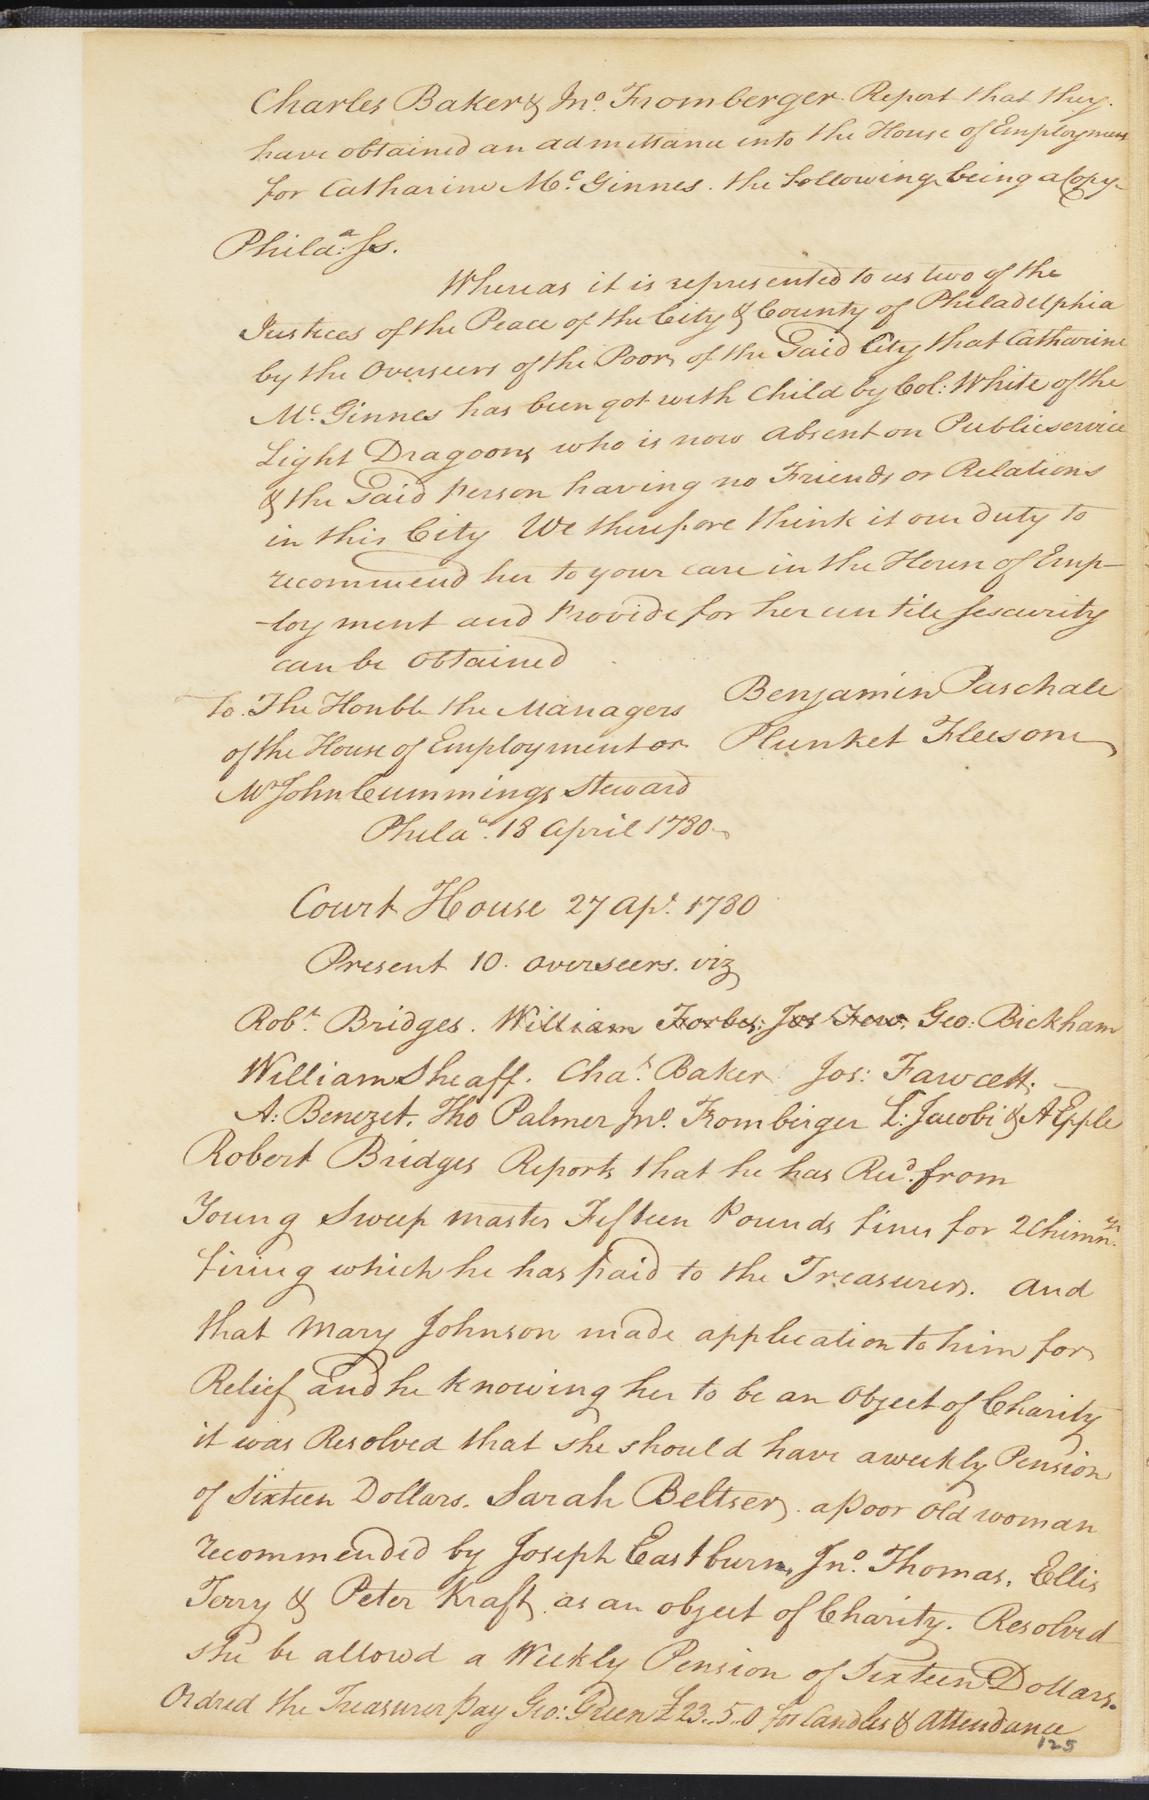 Charles Baker & Jno. Fromberger Report that they
have obtained an admittance into the House of Employment
for Catharine Mc. Ginnes. the following being a Copy
Philaa. Ss.
Whereas it is represented to us two of the
Justices of the Peace of the City & County of Philadelphia
by the Overseers of the Poor, of the Said City that Catharine
Mc. Ginnes has been got with Child by Col: White of the
Light Dragoons who is now absent on Public service
& the Said Person having no Friends or Relations
in this City We therefore think it our duty to
recommend her to your care in the House of Emp-
-loyment and Provide for her untile Sescurity
can be obtained
To The Honble the Managers
of the House of Employment or
Mr John Cummings Steward
Benjamin Paschall
Plunket Fleeson
Phila. 18 April 1780
Court House 27 Apl. 1780
Present 10. Overseers. viz
Robt. Bridges. William Forbes: Jos Few. Geo: Bickham
William Sheaff. Chas. Baker Jos: Fawcett.
A: Benezet. Tho Palmer Jno. Frombirger L: Jacobi & A Epple
Robert Bridges Reports that he has Recd. from
Young Sweep master Fifteen Pounds fines for 2 Chimnys.
firing which he has paid to the Treasurer. and
that Mary Johnson made application to him for
Relief and he knowing her to be an Object of Charity
it was Resolved that she should have a weekly Pension
of Sixteen Dollars. Sarah Beltser, a Poor old woman
recommended by Joseph Eastburn, Jno. Thomas, Ellis
Terry & Peter Kraft as an object of Charity. Resolved
she be allowd a Weekly Pension of Sixteen Dollars.
Ordred the Treasurer Pay Geo: Green £23..5..0 for Candles & Attendance
125